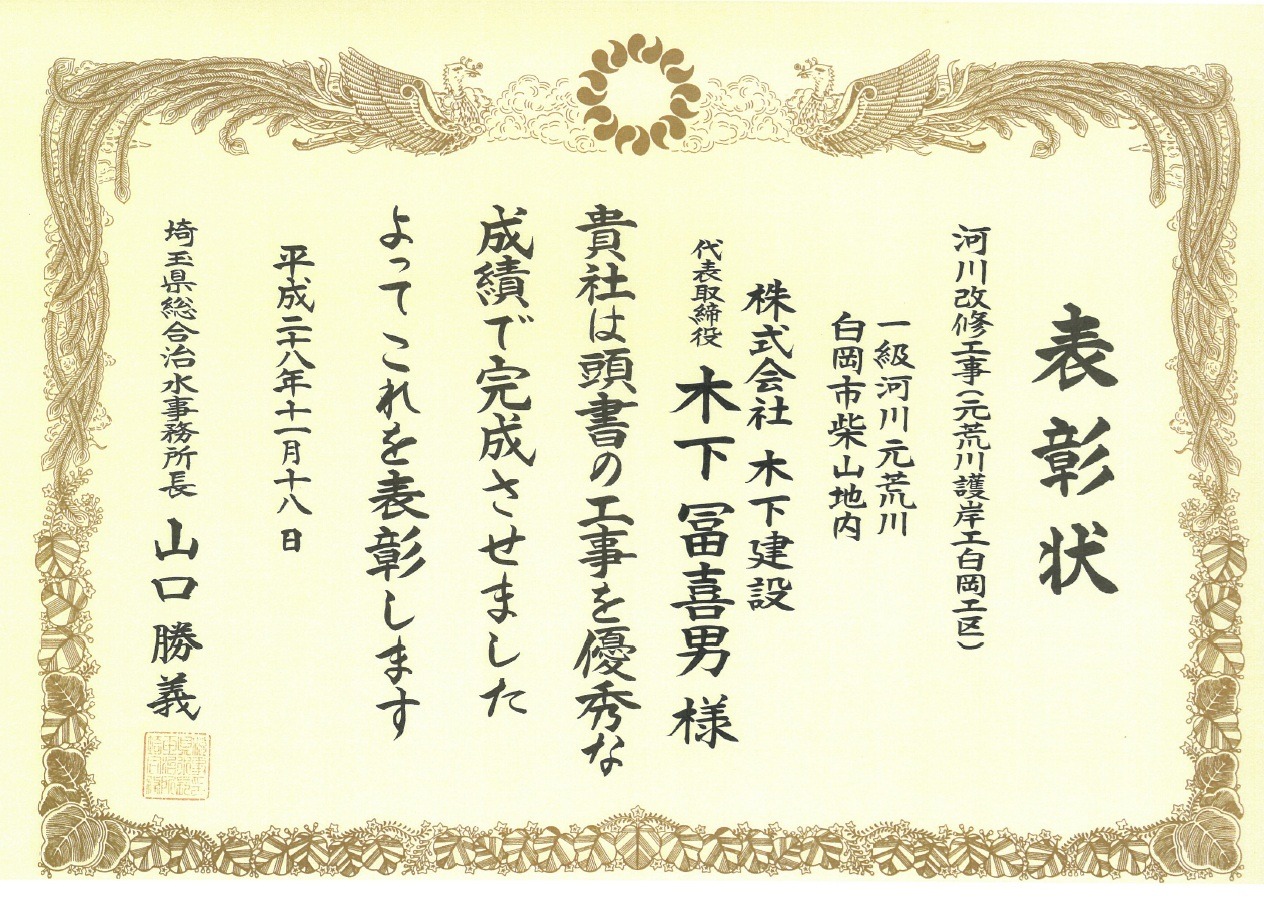 表彰状
河川改修工事(元荒川護岸工白岡工区)
一級河川元荒川
白岡市柴山地内
株式会社 木下建設
代表取締役 木下冨喜男 様
貴社は頭書の工事を優秀な
成績で完成させました
よってこれを表彰します
平成二十八年十一月十八日
埼玉県総合治水事務所長 山口勝義